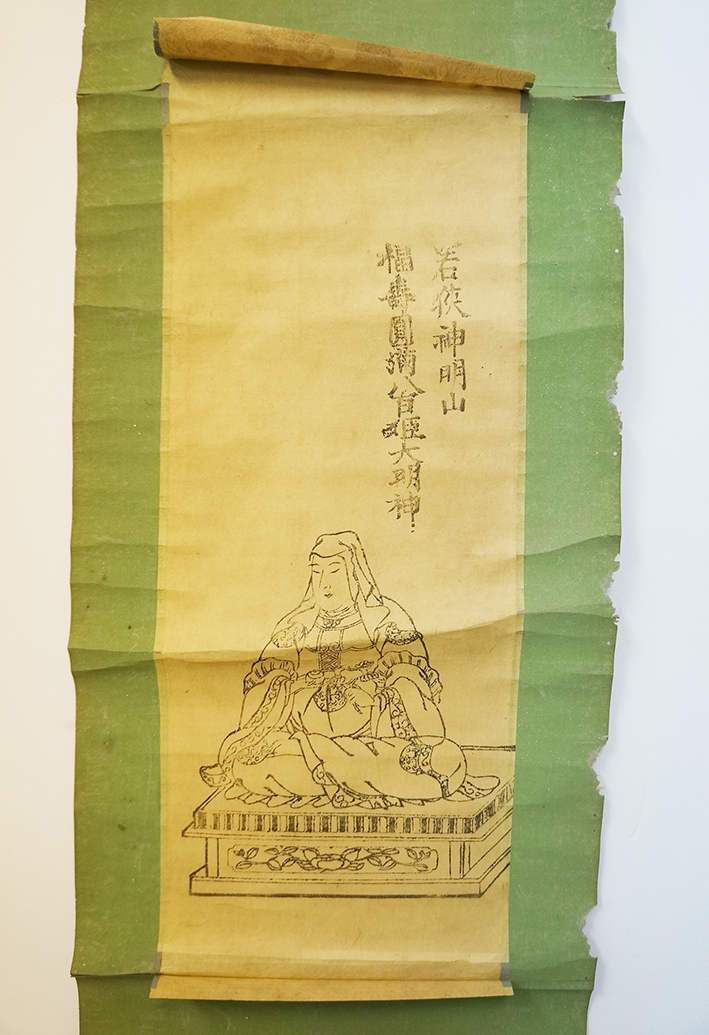 若狹神明山
福壽圓満八百姫大明神